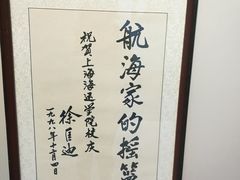 航海家的摇篮
祝贺上海海运学院校庆
徐匡迪
一九九八年十二月四日